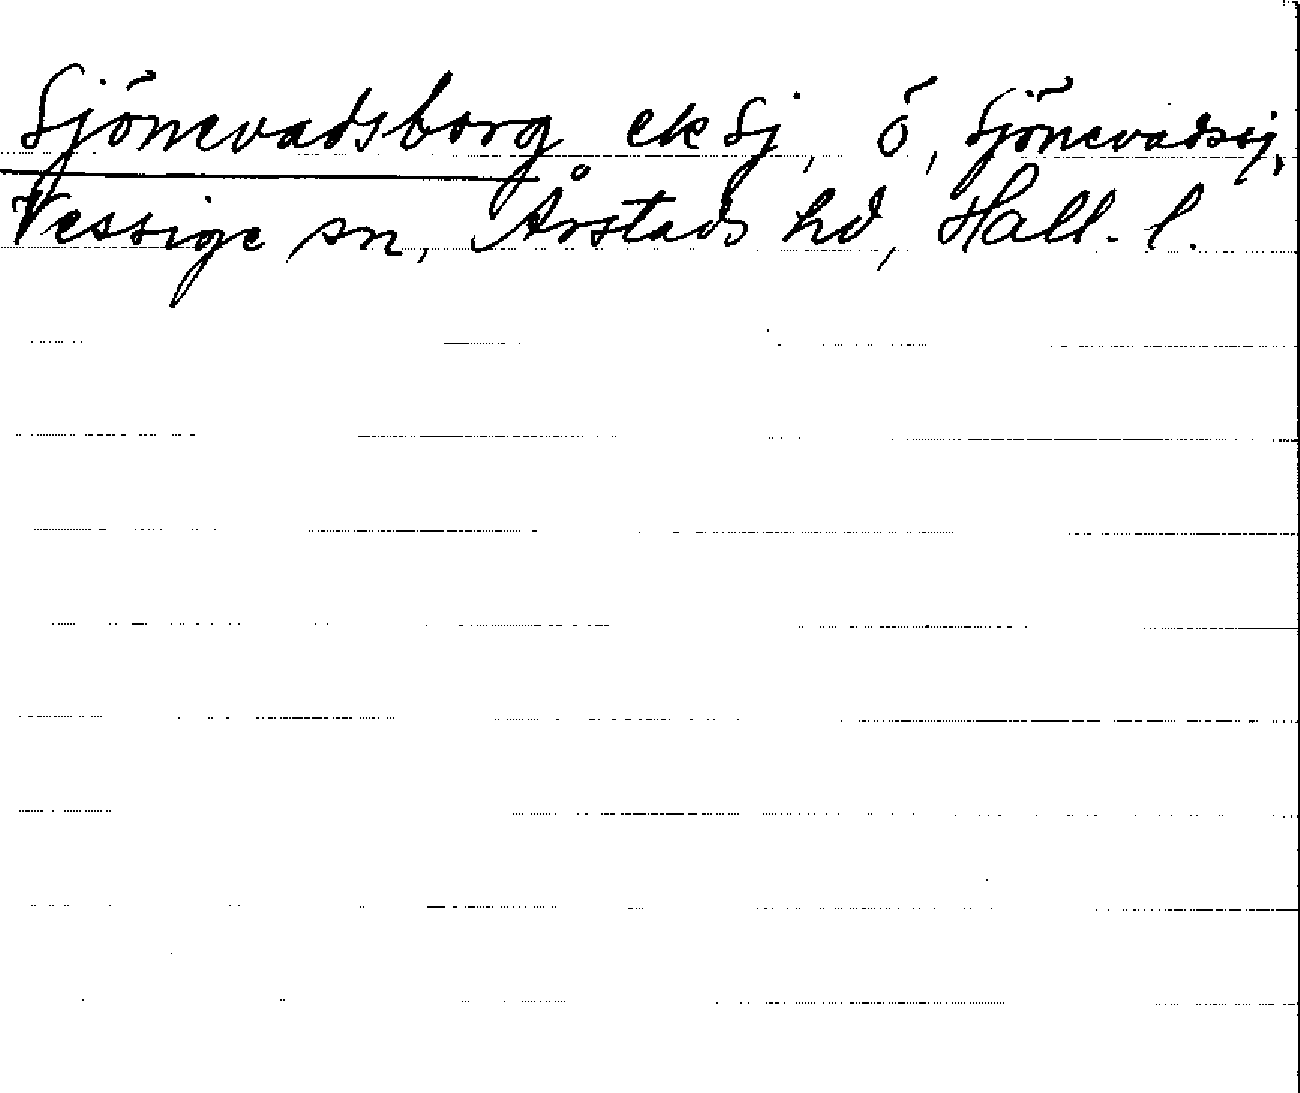 Sjönevadsborg ek Sj, ö, Sjönevadssj,
Vessige sn, Årstads hd, Hall. l.